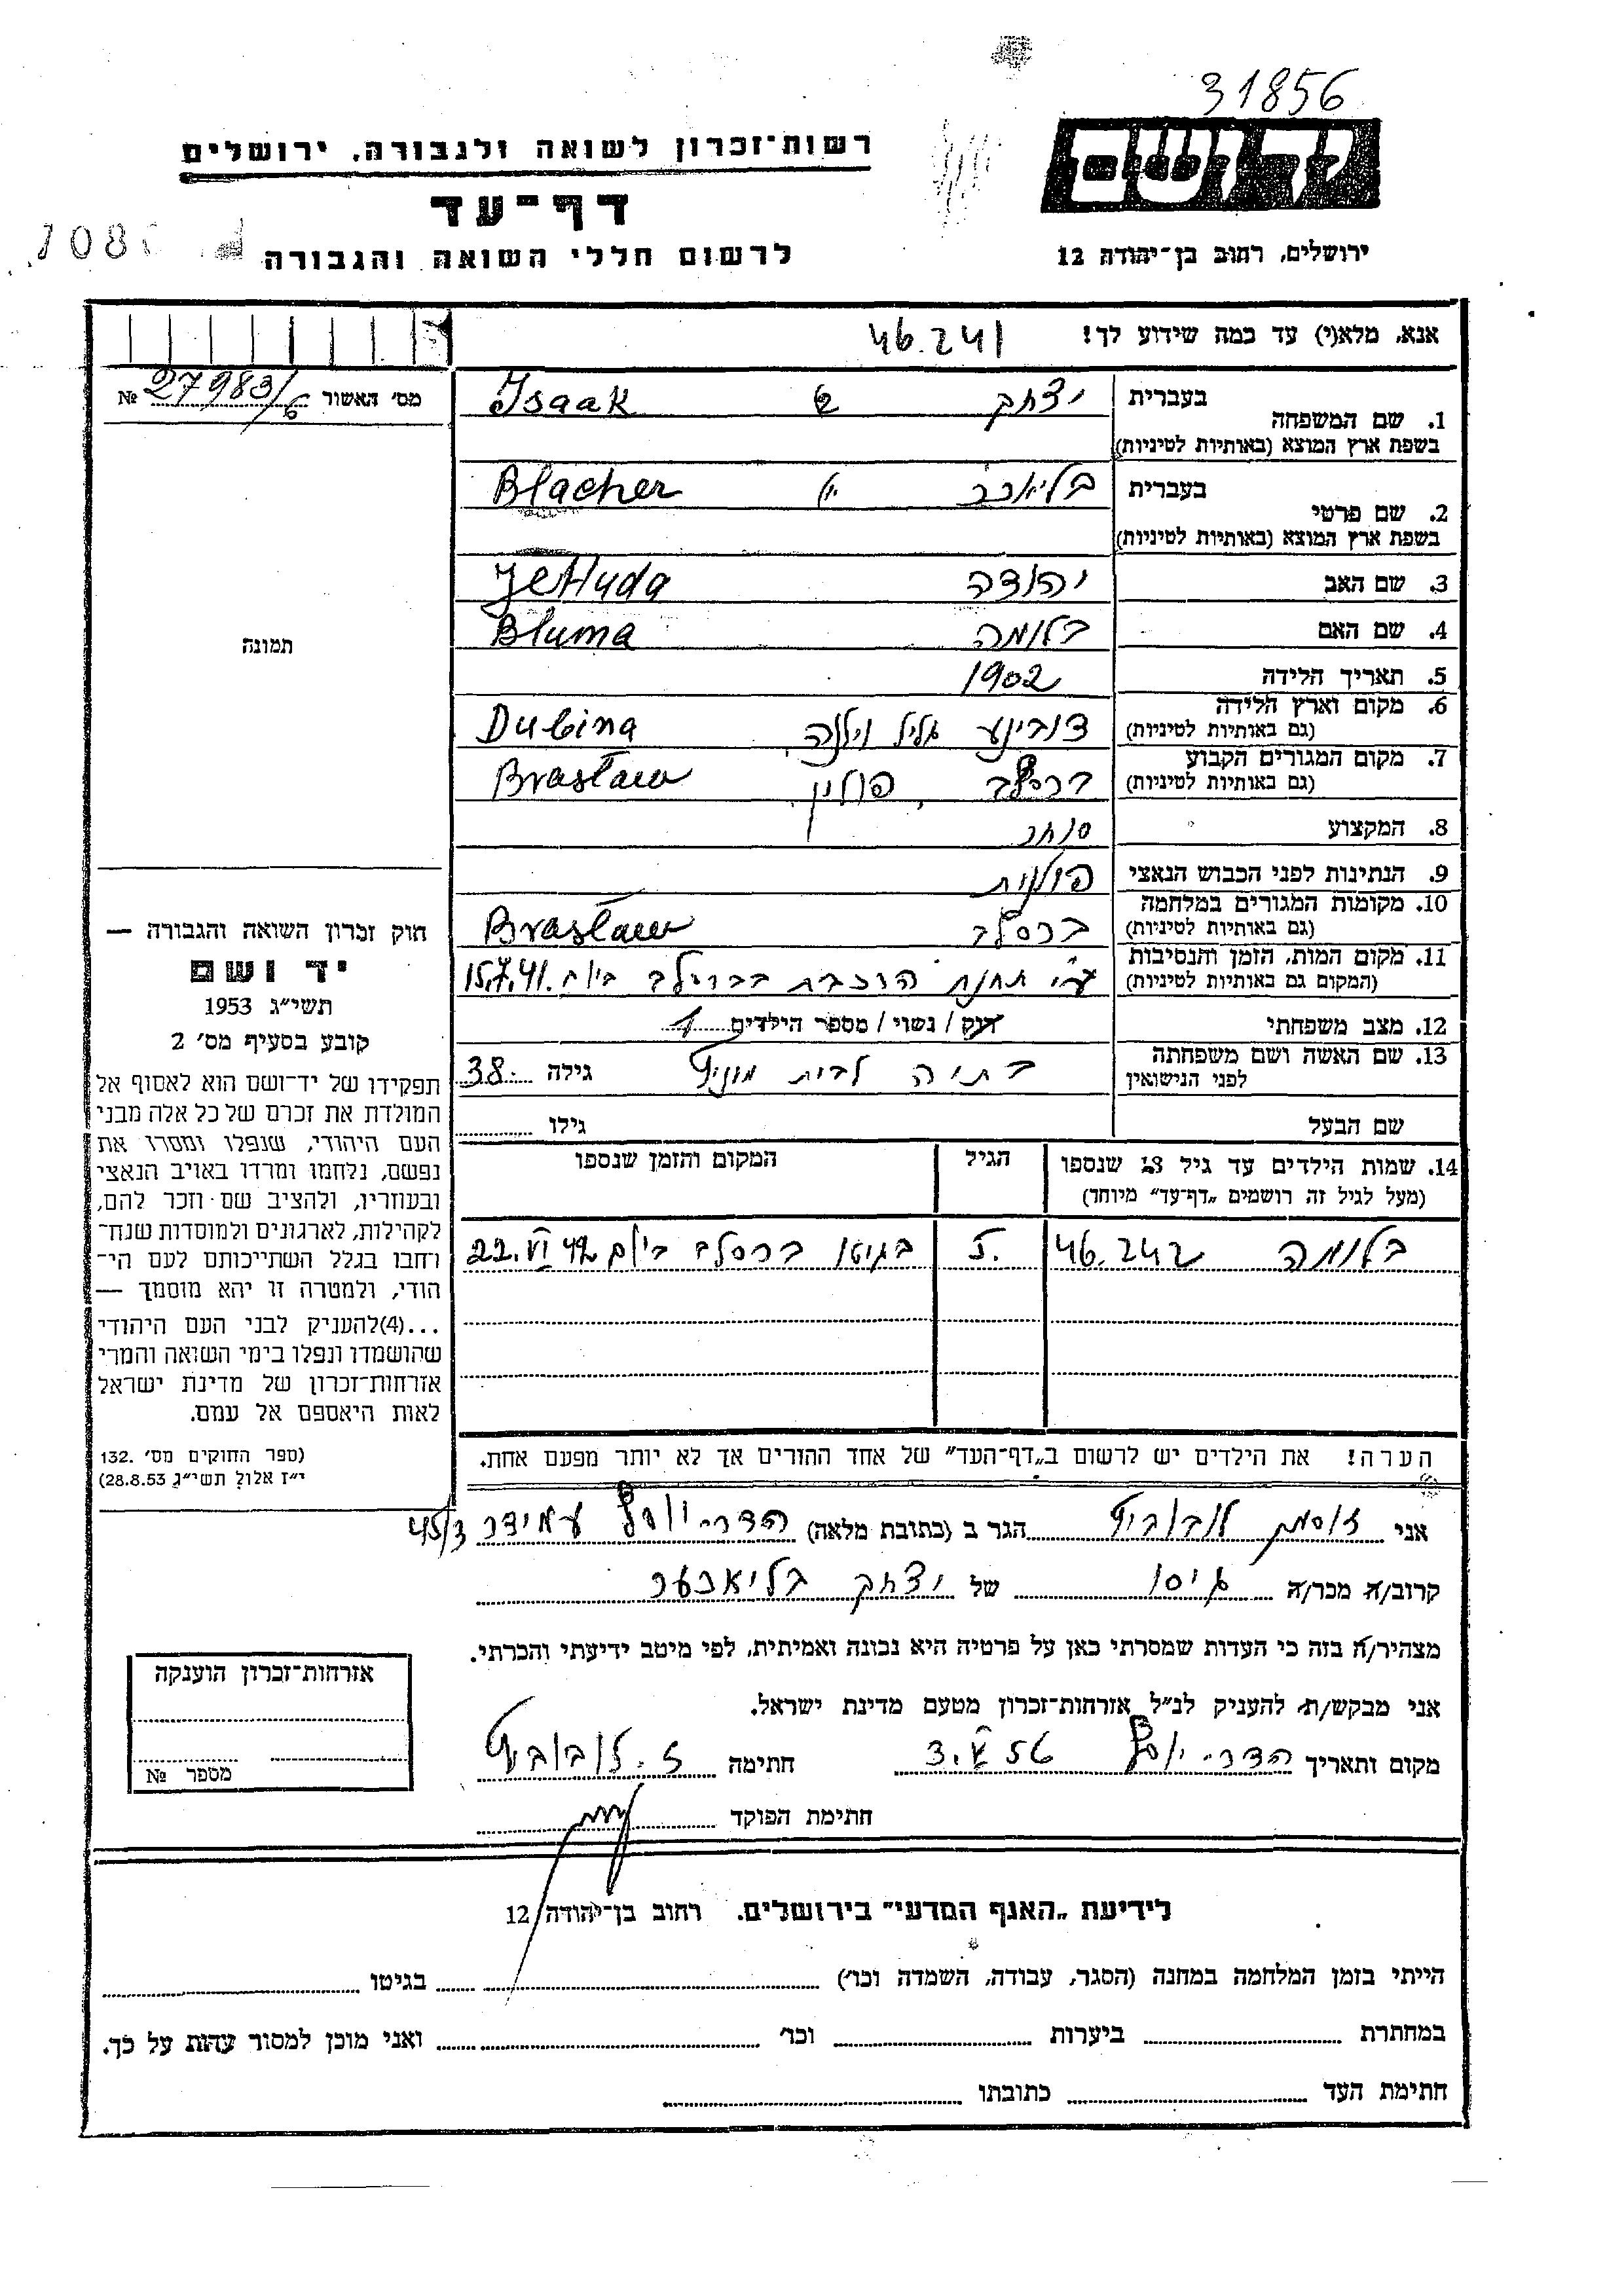 31856
יד ושם
רשות־זכרון לשואה ולגבורה, ירושלים
דף־עד
לרשום חללי השואה והגבורה
ירושלים, רחוב בן־יהודה 12
אנא, מלא(י) עד כמה שידוע לך! 46.241
מס' האשור 27983/6 №
בעברית יצחק Isaak
1. שם המשפחה
בשפת ארץ המוצא (באותיות לטיניות)
בעברית בליאכר Blacher
2. שם פרטי
בשפת ארץ המוצא (באותיות לטיניות)
3. שם האב יהודה JeHuda
4. שם האם בלומה Bluma
5. תאריך הלידה 1902
6. מקום וארץ הלידה
(גם באותיות לטיניות) דובינע גליל וילנה Dubina
7. מקום המגורים הקבוע
(גם באותיות לטיניות) ברסלב, פולין Brasław
8. המקצוע סוחר
9. הנתינות לפני הכבוש הנאצי פולנית
10. מקומות המגורים במלחמה
(גם באותיות לטיניות) ברסלב Brasław
11. מקום המות, הזמן והנסיבות
(המקום גם באותיות לטיניות) ע"י תחנת הרכבת בברסלב ביום 15.7.41
12. מצב משפחתי רוק / נשוי / מספר הילדים 1
13. שם האשה ושם משפחתה
לפני הנישואין בתיה לבית גילה 38
שם הבעל גילו
14. שמות הילדים עד גיל 18 שנספו הגיל המקום והזמן שנספו
(מעל לגיל זה רושמים „דף־עד" מיוחד)
בלומה 46.242 5. בגיטו ברסלב ביום 22.VI 42
הערה! את הילדים יש לרשום ב„דף־העד" של אחד ההורים אך לא יותר מפעם אחת.
תמונה
חוק זכרון השואה והגבורה —
יד ושם
תשי"ג 1953
קובע בסעיף מס' 2
תפקידו של יד־ושם הוא לאסוף אל
המולדת את זכרם של כל אלה מבני
העם היהודי, שנפלו ומסרו את
נפשם, נלחמו ומרדו באויב הנאצי
ובעוזריו, ולהציב שם וזכר להם,
לקהילות, לארגונים ולמוסדות שנח־
רחבו בגלל השתייכותם לעם הי־
הודי, ולמטרה זו יהא מוסמך —
...(4) להעניק לבני העם היהודי
שהושמדו ונפלו בימי השואה והמרי
אזרחות־זכרון של מדינת ישראל
לאות היאספם אל עמם.
(ספר החוקים מס' 132.
י"ז אלול תשי"ג 28.8.53)
אני זוסמן לובוביץ הגר ב (כתובת מלאה) הדר־יוסף עמידר 45/3
קרוב/ה מכר/ה גיסו של יצחק בליאכער
מצהיר/ה בזה כי העדות שמסרתי כאן על פרטיה היא נכונה ואמיתית, לפי מיטב ידיעתי והכרתי.
אני מבקש/ת להעניק לנ"ל אזרחות־זכרון מטעם מדינת ישראל.
מקום ותאריך הדר־יוסף 3.V.56 חתימה ז. לובוביץ
חתימת הפוקד
אזרחות־זכרון הוענקה
מספר №
לידיעת „האגף המדעי" בירושלים. רחוב בן־יהודה 12
הייתי בזמן המלחמה במחנה (הסגר, עבודה, השמדה וכו') בגיטו
במחתרת ביערות וכו' ואני מוכן למסור עדות על כך.
חתימת העד כתובתו